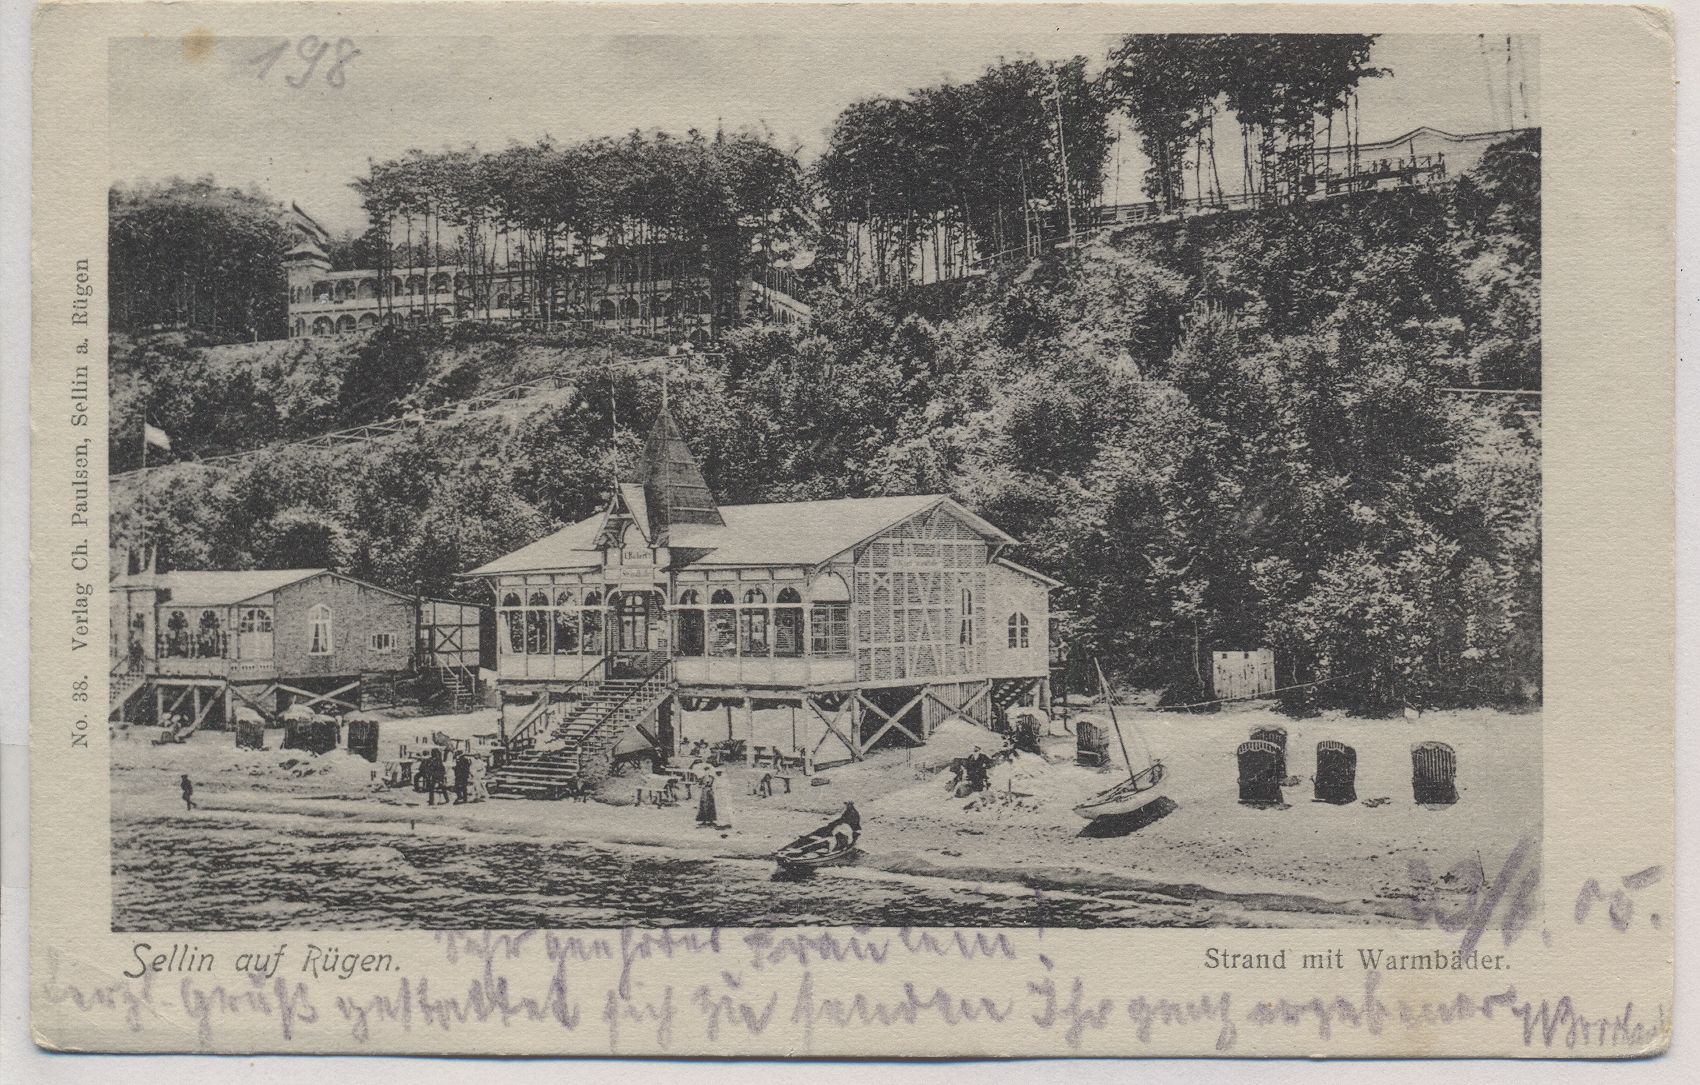 198
No. 38. Verlag Ch. Paulsen, Sellin a. Rügen
/8. 05.
Sellin auf Rügen.
Sehr geehrtes Fräulein!
Strand mit Warmbäder.
Herzl. Gruß gestattet sich zu senden Ihr ganz ergebener